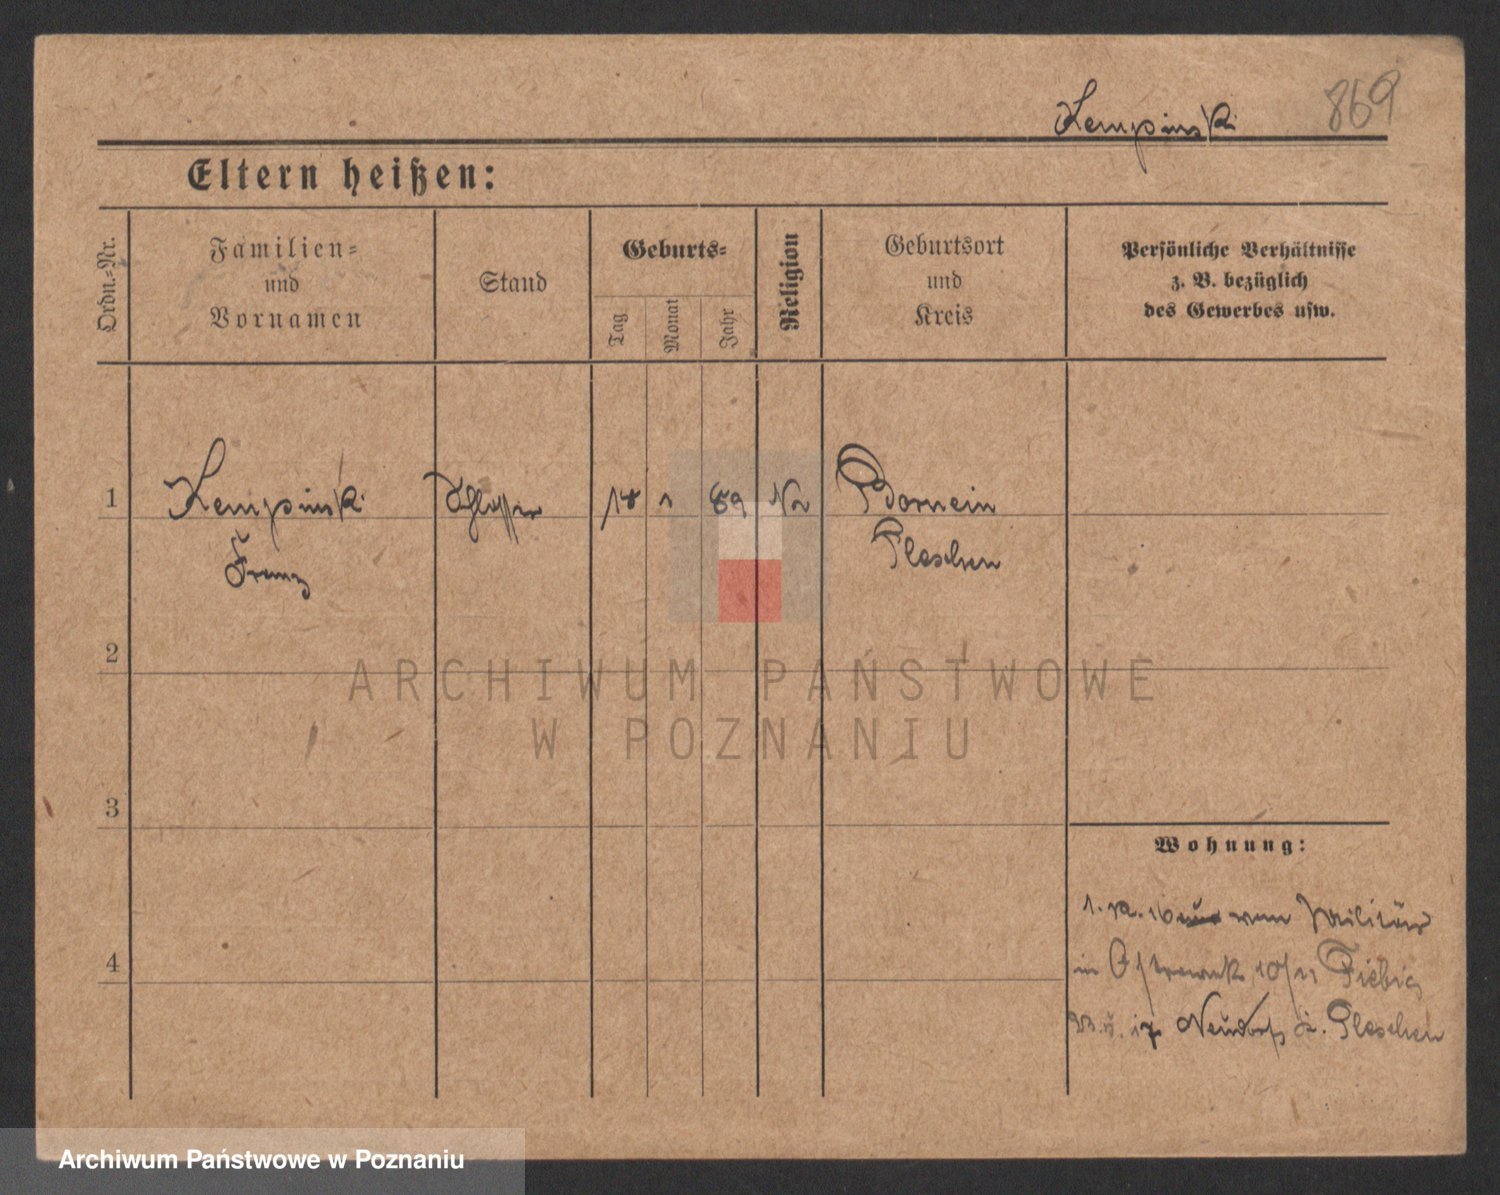 Kempinski 869
Eltern heißen:
Ordn.-Nr.
Familien-
und
Vornamen
Stand
Geburts-
Tag
Monat
Jahr
Religion
Geburtsort
und
Kreis
Persönliche Verhältnisse
z. B. bezüglich
des Gewerbes usw.
1 Kempinski Schlosser 18 1 89
Franz Pleschen
2
3
4
Wohnung:
Militär
in Ostrowo 10/11 Fiebig
17 Neudorf Pleschen
ARCHIWUM PAŃSTWOWE
W POZNANIU
Archiwum Państwowe w Poznaniu